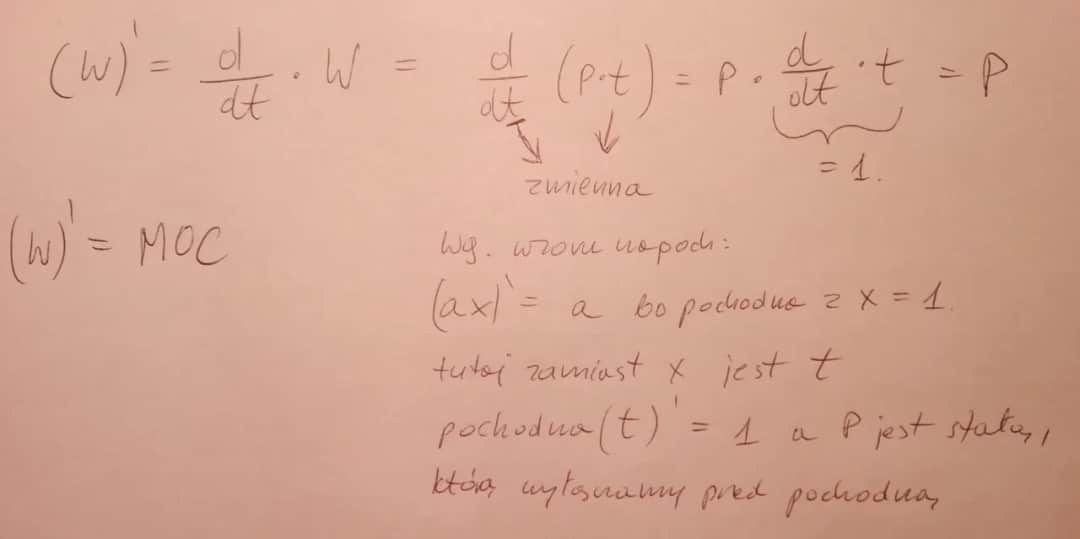 (W)' = d/dt · W = d/dt (P·t) = P · d/dt · t = P
= 1.
zmienna
(W)' = MOC
Wg. wzoru na poch:
(ax)' = a bo pochodna z x = 1.
tutaj zamiast x jest t
pochodna (t)' = 1 a P jest stałą,
którą wyłączamy pred pochodną